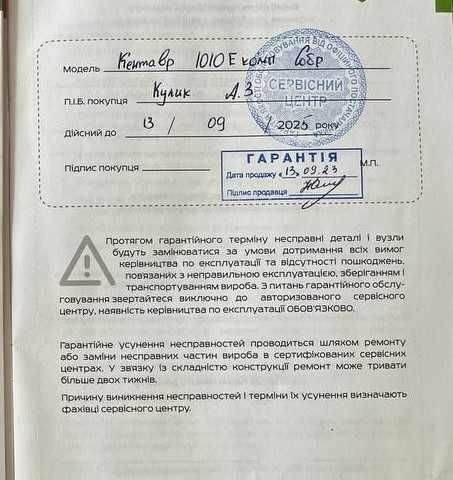 Модель Кентавр 1010Е комп Собр
П.І.Б. покупця Кулик А.З
Дійсний до 13 / 09 / 2025 року
Підпис покупця М.П.
ОБСЛУГОВУВАННЯ ВІД ОФІЦІЙНОГО
СЕРВІСНИЙ
ЦЕНТР
ГАРАНТІЯ
Дата продажу 13.09.23
Підпис продавця
Протягом гарантійного терміну несправні деталі і вузли
будуть замінюватися за умови дотримання всіх вимог
керівництва по експлуатації та відсутності пошкоджень,
пов'язаних з неправильною експлуатацією, зберіганням і
транспортуванням вироба. З питань гарантійного обслу-
говування звертайтеся виключно до авторизованого сервісного
центру, наявність керівництва по експлуатації ОБОВ'ЯЗКОВО.
Гарантійне усунення несправностей проводиться шляхом ремонту
або заміни несправних частин вироба в сертифікованих сервісних
центрах. У зв'язку із складністю конструкції ремонт може тривати
більше двох тижнів.
Причину виникнення несправностей і терміни їх усунення визначають
фахівці сервісного центру.